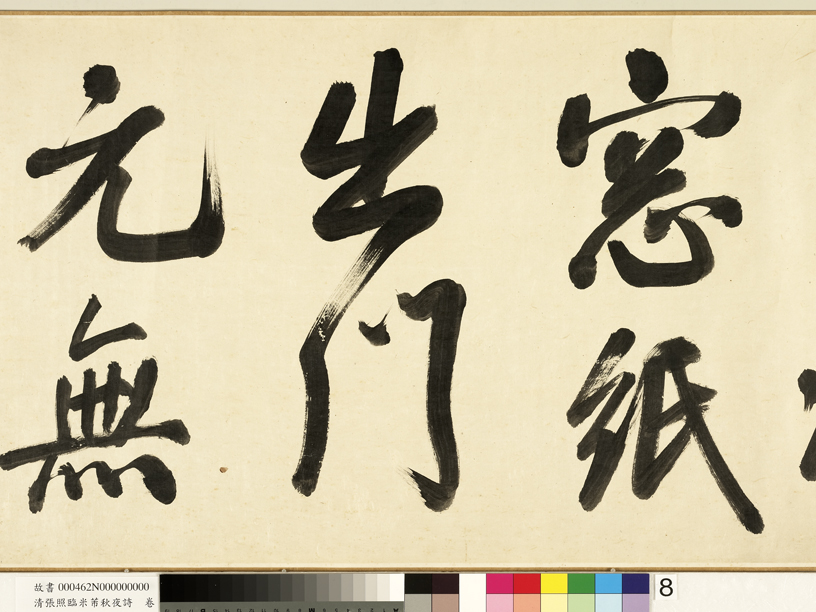 窓紙
出門
元無
8
故書 000462N000000000
清張照臨米芾秋夜詩 卷